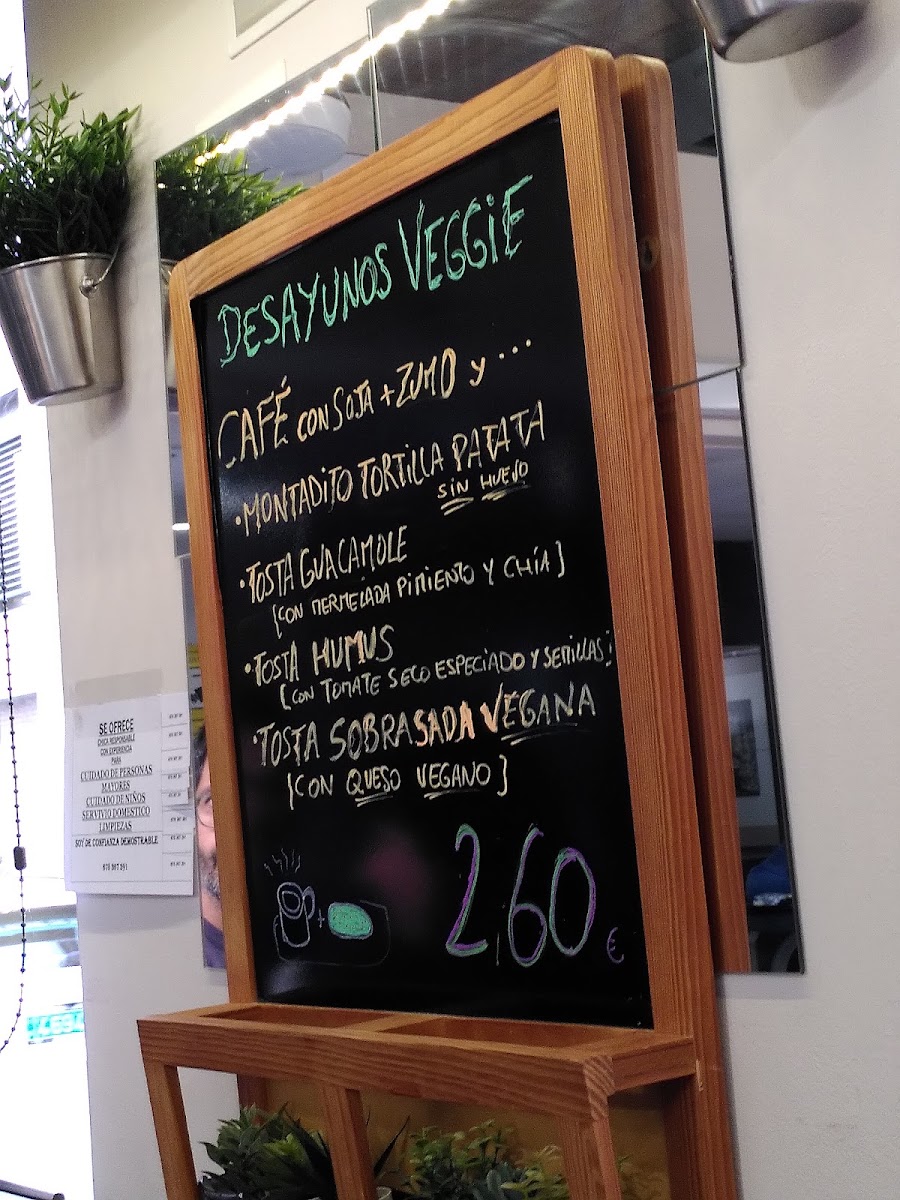 DESAYUNOS VEGGiE
CAFÉ CON SOJA + ZUMO y ...
• MONTADiTO TORTiLLA PATATA
SiN HUEVO
• TOSTA GUACAMOLE
[CON MERMELADA PIMIENTO Y CHÍA]
• TOSTA HUMUS
[CON TOMATE SECO ESPECIADO Y SEMILLAS]
• TOSTA SOBRASADA VEGANA
[CON QUESO VEGANO]
+
2,60 €
SE OFRECE
CHICA RESPONSABLE
CON EXPERIENCIA
PARA
CUIDADO DE PERSONAS
MAYORES
CUIDADO DE NIÑOS
SERVIVIO DOMESTICO
LIMPIEZAS
SOY DE CONFIANZA DEMOSTRABLE